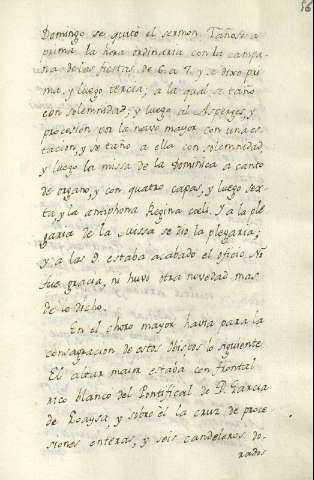 86
Domingo se quitó el sermon. Tañose a
prima la hora ordinaria con la campa-
na de las fiestas de 6. a 7. y se dixo pri
ma, y luego tercia; a la qual se taño
con solemnidad; y luego al Asperges, y
procesión por la nave mayor con una es-
tacion, y se taño a ella con solemnidad,
y luego la missa de la Dominica a canto
de organo, y con quatro capas, y luego sex-
ta, y la antiphona Regina cœli. Y a la ple
garia de la missa se dio la plegaria;
y a las 9. estaba acabado el oficio. No
fue gracia, ni huvo otra novedad mas
de lo dicho.
En el choro mayor havia para la
consagracion de estos Obispos lo siguiente
El altar maior estaba con frontal
rico blanco del Pontifical de D. Garcia
de Loaysa, y sobre el la cruz de proce
siones enteras, y seis candeleros do-
rados